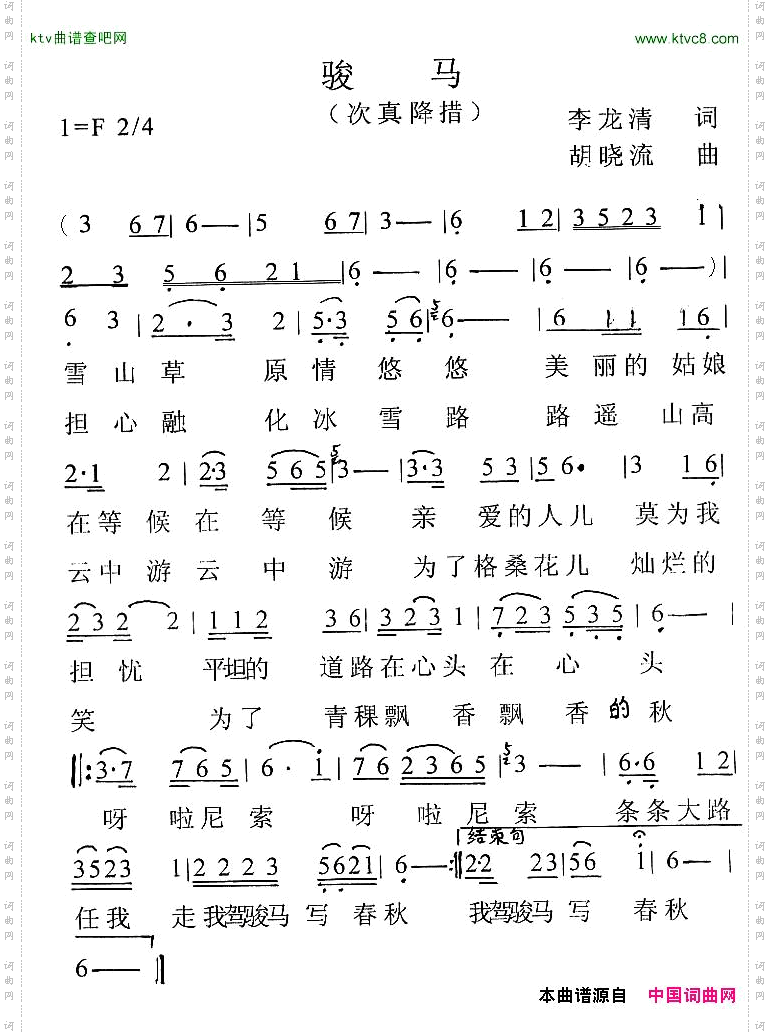 ktv曲谱查吧网
www.ktvc8.com
骏 马
(次真降措)
1=F 2/4
李龙清 词
胡晓流 曲
(3 67|6—|5 67|3—|6 12|3523 1|
2 3 5 6 21|6—|6—|6—|6—)|
6 3|2·3 2|5·3 56|5 6—|6 11|16|
雪山草 原情悠悠 美丽的姑娘
担心融 化冰雪路 路遥山高
2·1 2|2·3 565|5 3—|3·3 53|56·|3 16|
在等候在等候 亲爱的人儿 莫为我
云中游云中游 为了格桑花儿 灿烂的
232 2|112 36|323 1|723 535|6—|
担忧 平坦的 道路在心头在心头
笑 为了 青稞飘香飘香的秋
‖:3·7 765|6·i|765 2365|5 3—|6·6 12|
呀啦尼索 呀啦尼索 条条大路
结束句
3523 1|2223 5621|6—:‖2·2 23|56 1|6—|
任我 走我驾骏马写春秋 我驾骏马写春秋
6—‖
本曲谱源自 中国词曲网
词曲网